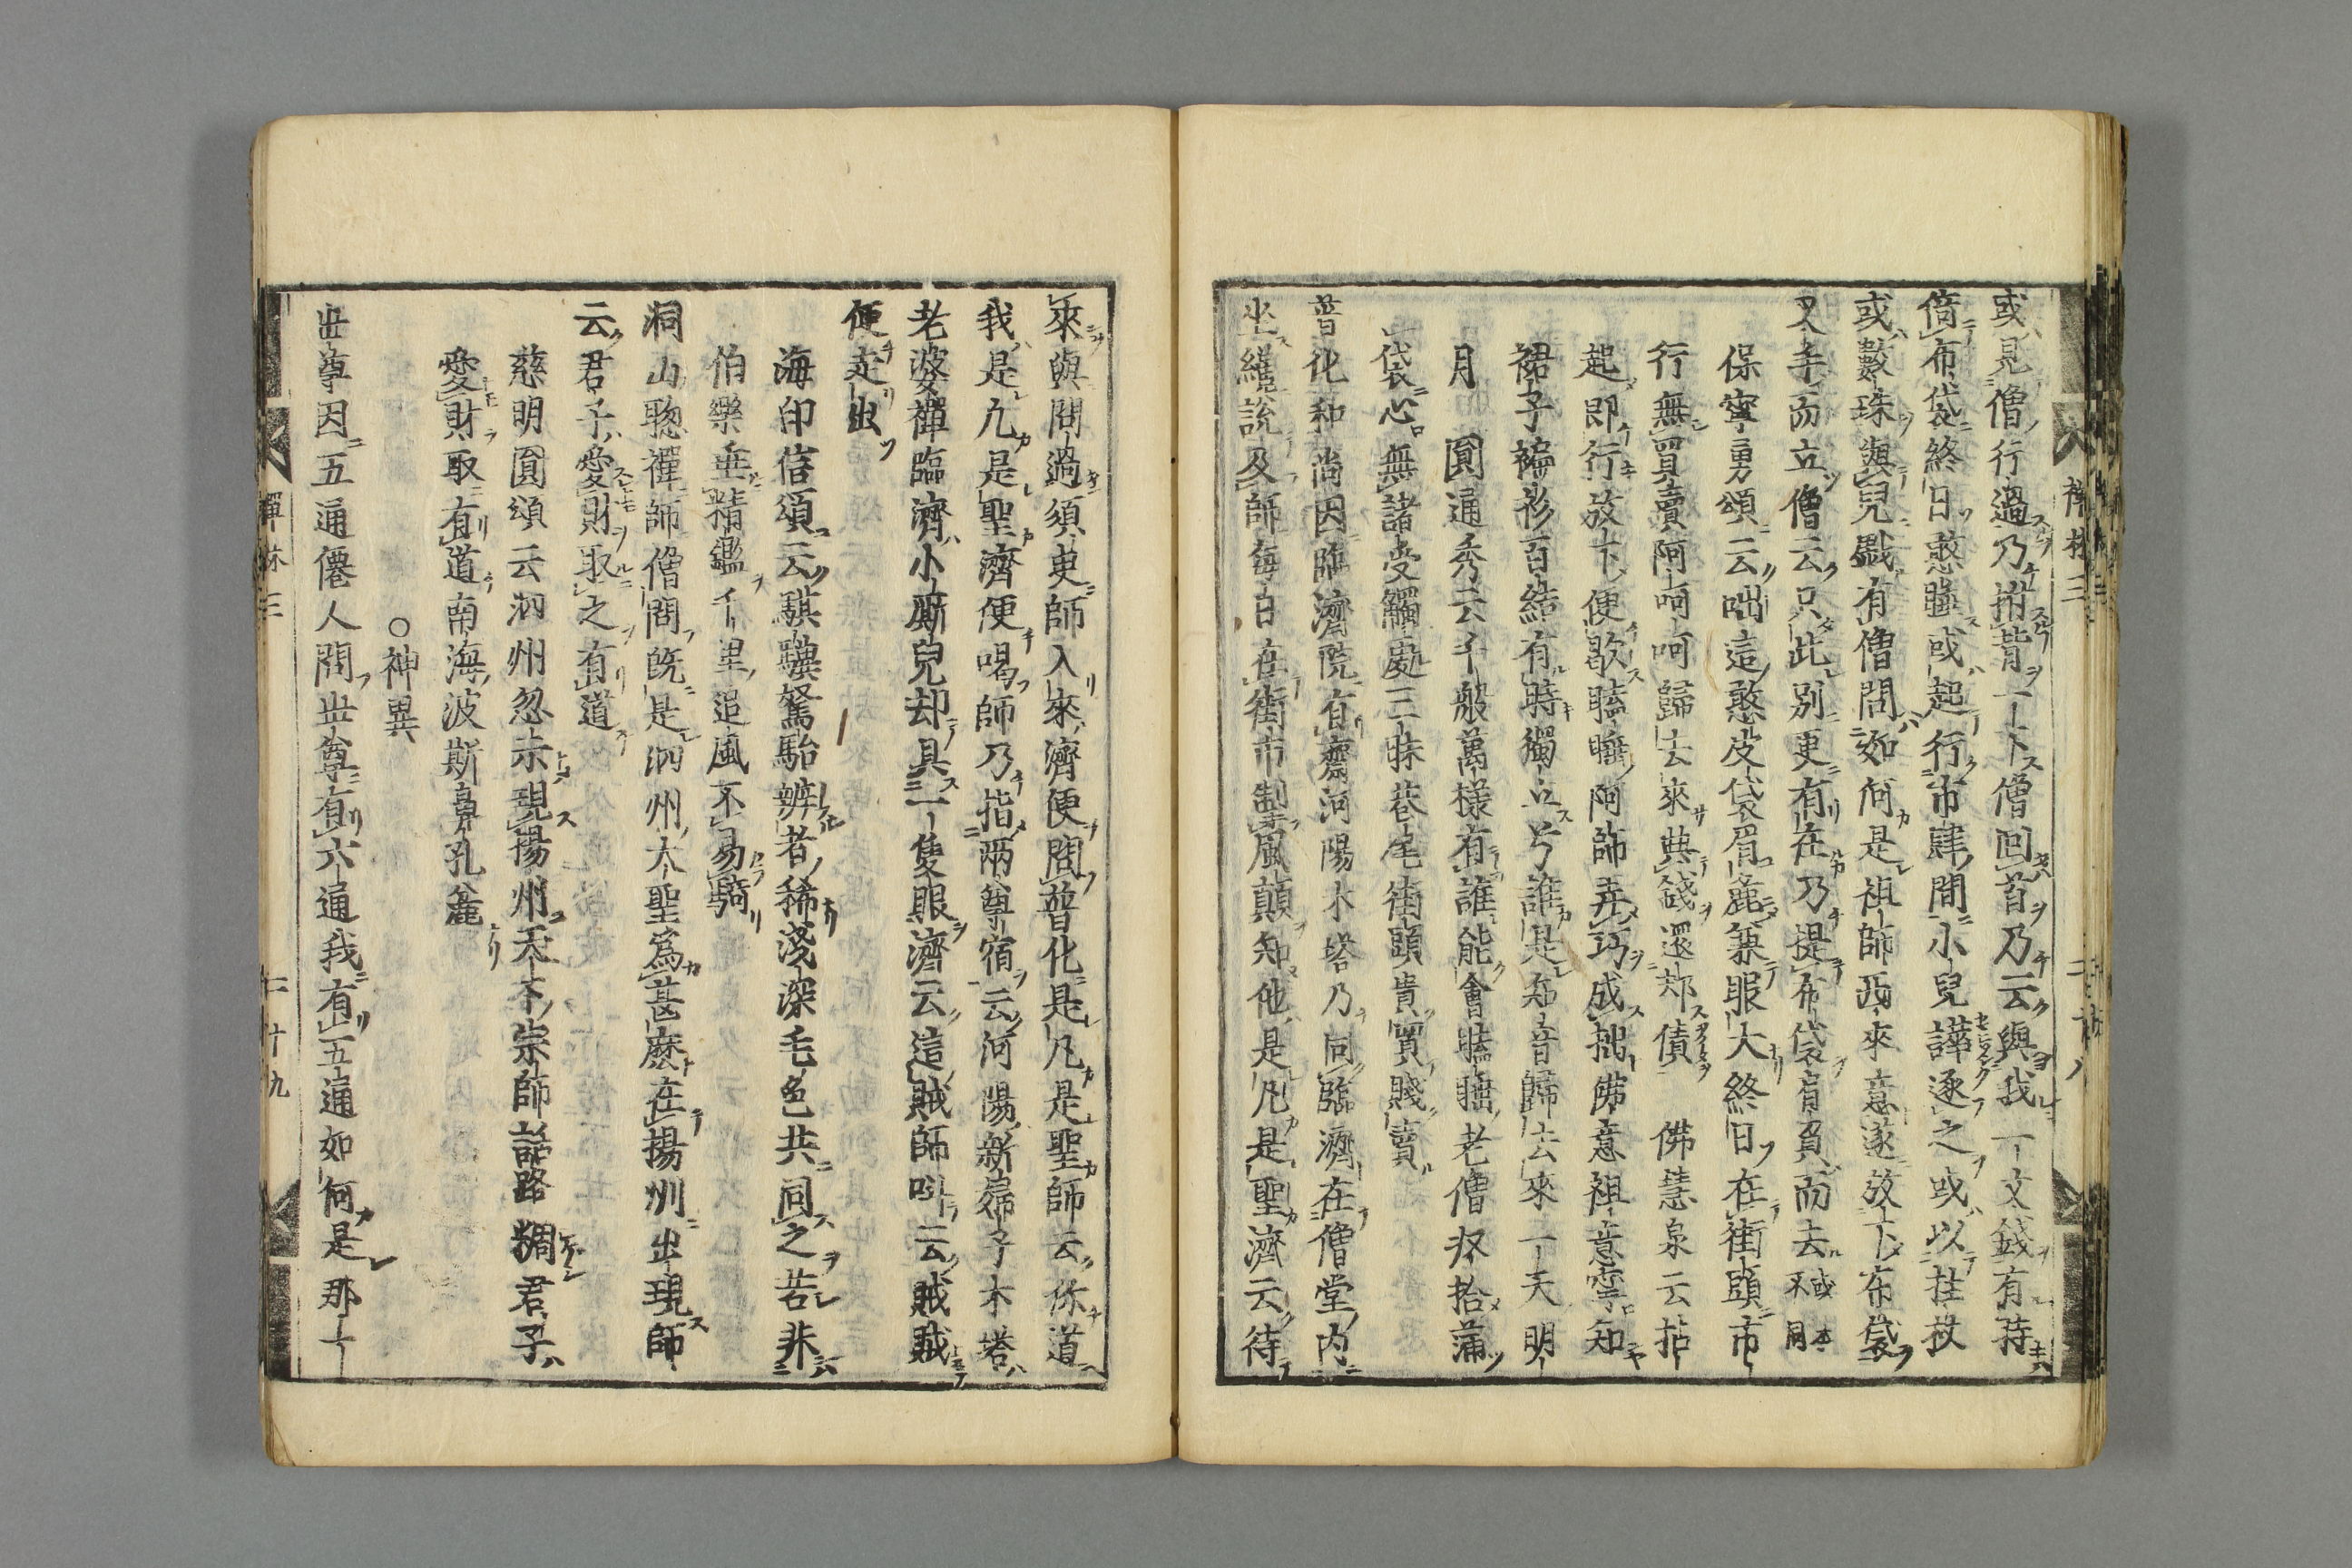 或見僧行過乃拊背一下僧回首乃云與我一文錢有時
倚布袋終日憨睡或起行市肆間小兒譁逐之或以拄杖
或數珠與兒戲有僧問如何是祖師西來意遂放下布袋
叉手而立僧云只此別更有在乃提布袋肩負而去
保寧勇頌云咄這憨皮袋眉麁兼眼大終日在街頭市
行無買賣阿呵呵歸去來典錢還却債 佛慧泉云拈
起即行放下便歇瞌睡阿師弄巧成拙佛意祖意寧知
裙子褊衫百結有時獨立兮誰是知音歸去來一天明
月 圓通秀云千般萬樣有誰能會瞌睡老僧收拾蒲
袋心無諸受觸處三昧巷尾街頭貴買賤賣
普化和尚因臨濟院有齋河陽木塔乃同臨濟在僧堂內
坐纔說及師每日在街市掣風顛知他是凡是聖濟云待
來與問過須更師入來濟便問普化是凡是聖師云你道
我是凡是聖濟便喝師乃指兩尊宿云河陽新婦子木塔
老婆禪臨濟小厮兒却具一隻眼濟云這賊師叫云賊賊
便走出
海印信頌云騏驥駑駘辨者稀淺深毛色共同之若非
伯樂垂精鑑千里追風不易騎
洞山聰禪師僧問既是泗州大聖為甚麼在揚州出現師
云君子愛財取之有道
慈明圓頌云泗州忽示現揚州天下宗師話路稠君子
愛財取有道南海波斯鼻孔麄
○神異
世尊因五通僊人問世尊有六通我有五通如何是那一
禪林三
二十九